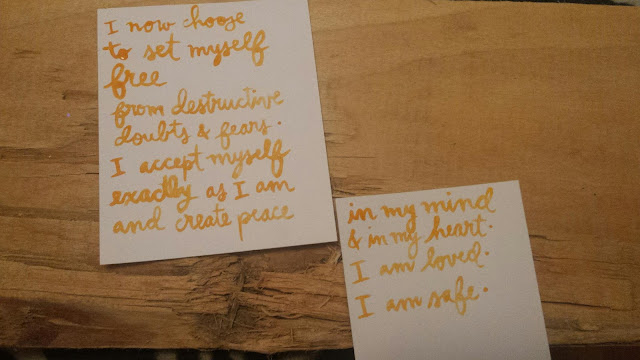 I now choose
to set myself
free
from destructive
doubts & fears.
I accept myself
exactly as I am
and create peace
in my mind
& in my heart.
I am loved.
I am safe.